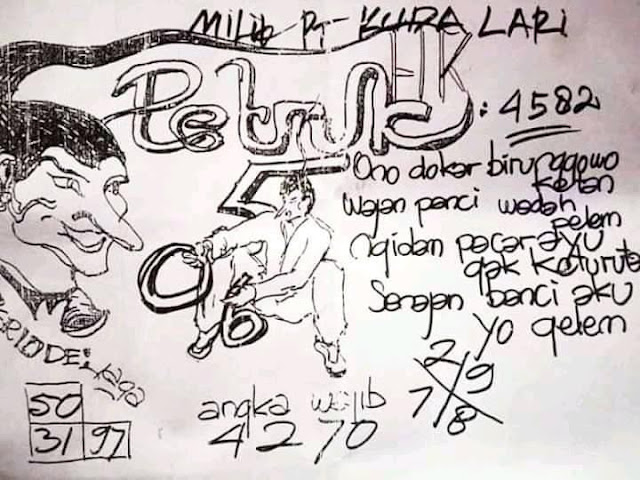 Milik Pr- KUDA LARI
Petruk HK : 4582
5
Ono dokar biru nggowo
ketan
Wajan panci wadah
pelem
Ngidam pacar ayu
gak keturutan
Senajan banci aku
yo gelem
0 6
PERIODE:
50
31 97
angka wajib
4270
2 9
7 8